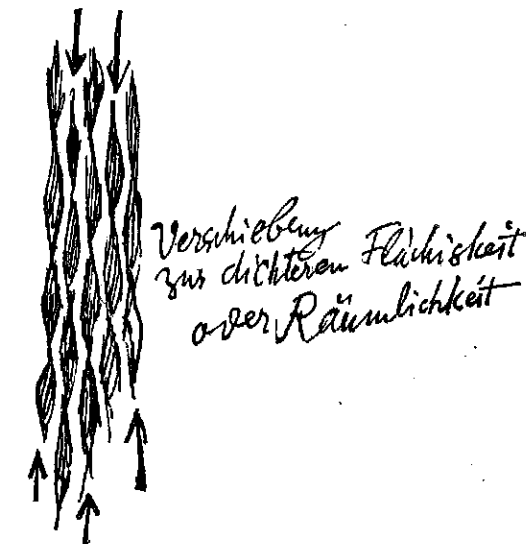 Verschiebung
zur dichteren Flächigkeit
oder Räumlichkeit